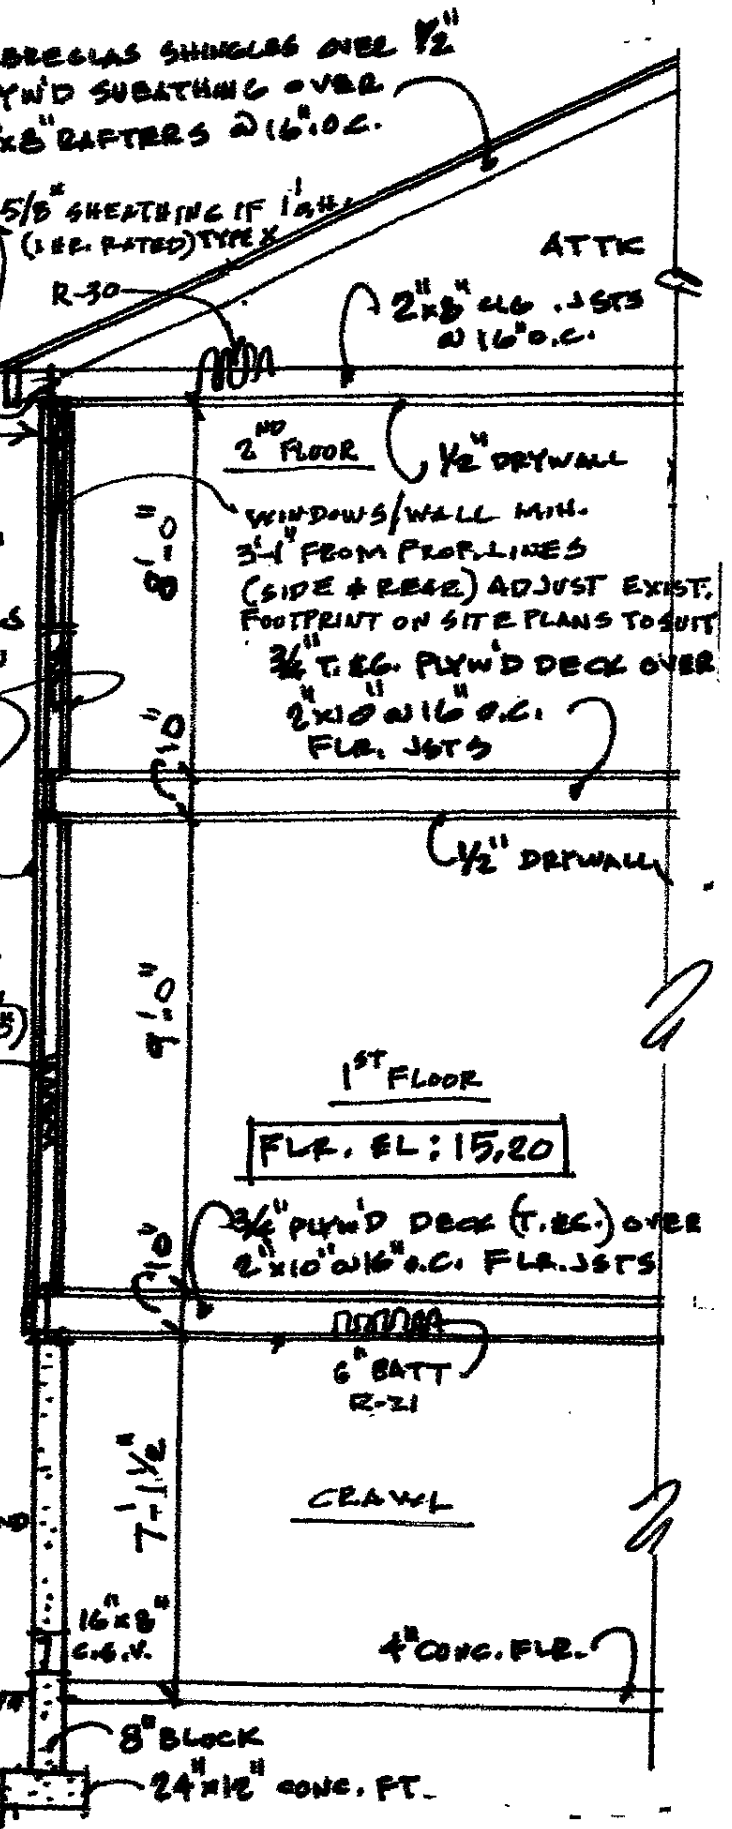 BREGLAS SHINGLES OVER 1/2"
YW'D SHEATHING OVER
x8" RAFTERS @ 16" O.C.
5/8" SHEATHING IF
(1 HR. RATED) TYPE X
R-30
ATTIC
2"x8" CLG. JSTS
@ 16" O.C.
2ND FLOOR
1/2" DRYWALL
8'-0"
WINDOWS/WALL MIN.
3'-1" FROM PROP. LINES
(SIDE & REAR) ADJUST EXIST.
FOOTPRINT ON SITE PLANS TO SUIT
3/4" T. & G. PLYW'D DECK OVER
2"x10" @ 16" O.C.
FLR. JSTS
10"
1/2" DRYWALL
9'-0"
1ST FLOOR
FLR. EL: 15.20
3/4" PLYW'D DECK (T. & G.) OVER
2"x10" @ 16" O.C. FLR. JSTS
10"
6" BATT
R-21
7'-1 1/2"
CRAWL
16"x8"
C.G.V.
4" CONC. FLR.
8" BLOCK
24"x12" CONC. FT.